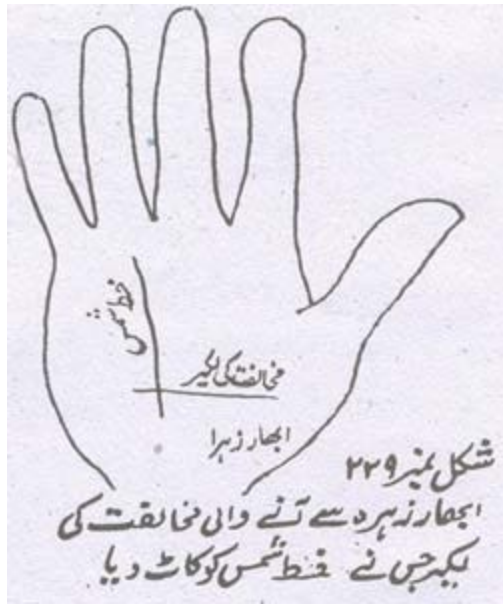 خط شمس
مخالفت کی لکیر
ابھار زہرا
شکل نمبر ۲۲۹
ابھار زہرہ سے آنے والی مخالفت کی
لکیر جس نے خط شمس کو کاٹ دیا